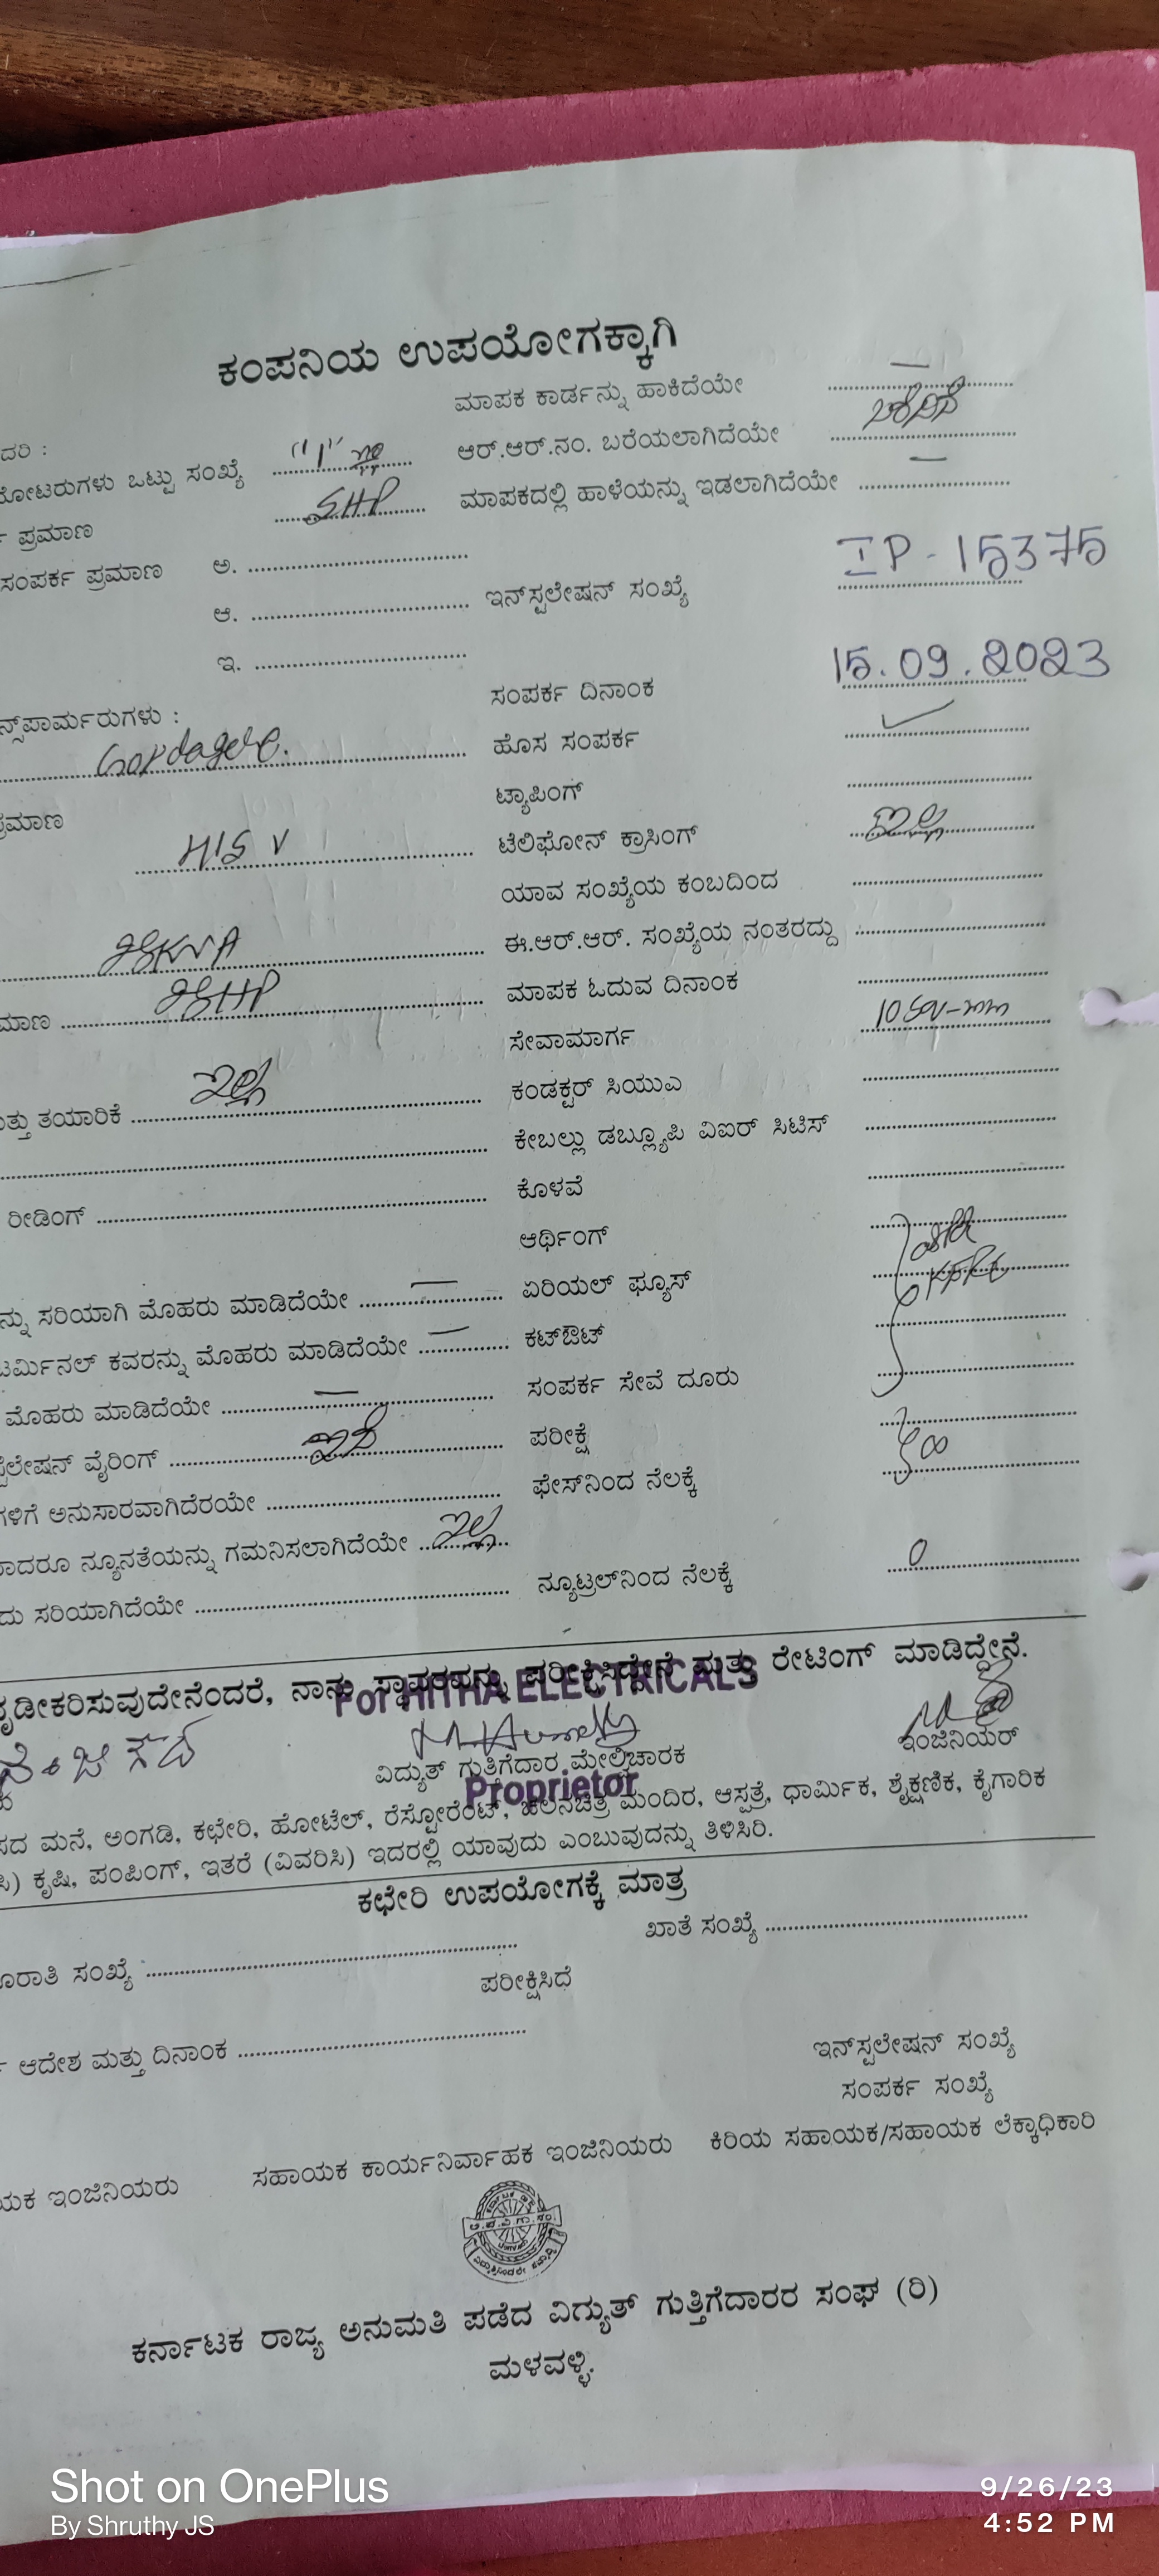 ಕಂಪನಿಯ ಉಪಯೋಗಕ್ಕಾಗಿ
ಮಾಪಕ ಕಾರ್ಡನ್ನು ಹಾಕಿದೆಯೇ
ದರಿ :
ಆರ್.ಆರ್.ನಂ. ಬರೆಯಲಾಗಿದೆಯೇ
ಮೋಟರುಗಳು ಒಟ್ಟು ಸಂಖ್ಯೆ "1"
ಮಾಪಕದಲ್ಲಿ ಹಾಳೆಯನ್ನು ಇಡಲಾಗಿದೆಯೇ —
ಪ್ರಮಾಣ 5HP
ಸಂಪರ್ಕ ಪ್ರಮಾಣ ಅ.
ಆ. ಇನ್‌ಸ್ಟಲೇಷನ್ ಸಂಖ್ಯೆ IP-15375
ಇ.
ಸಂಪರ್ಕ ದಿನಾಂಕ 15.09.2023
ನ್ಸ್‌ಪಾರ್ಮರುಗಳು :
ಹೊಸ ಸಂಪರ್ಕ ✓
ಟ್ಯಾಪಿಂಗ್
ಪ್ರಮಾಣ
ಟೆಲಿಫೋನ್ ಕ್ರಾಸಿಂಗ್ ಇಲ್ಲ
ಯಾವ ಸಂಖ್ಯೆಯ ಕಂಬದಿಂದ
ಈ.ಆರ್.ಆರ್. ಸಂಖ್ಯೆಯ ನಂತರದ್ದು
ಮಾಪಕ ಓದುವ ದಿನಾಂಕ
ಮಾಣ
ಸೇವಾಮಾರ್ಗ
ಕಂಡಕ್ಟರ್ ಸಿಯುಎ
ತ್ತು ತಯಾರಿಕೆ ಇಲ್ಲ
ಕೇಬಲ್ಲು ಡಬ್ಲ್ಯೂಪಿ ವಿಐರ್ ಸಿಟಿಸ್
ಕೊಳವೆ
ರೀಡಿಂಗ್
ಆರ್ಥಿಂಗ್
ಏರಿಯಲ್ ಫ್ಯೂಸ್
ನ್ನು ಸರಿಯಾಗಿ ಮೊಹರು ಮಾಡಿದೆಯೇ —
ಕಟ್‌ಔಟ್
ಟರ್ಮಿನಲ್ ಕವರನ್ನು ಮೊಹರು ಮಾಡಿದೆಯೇ —
ಸಂಪರ್ಕ ಸೇವೆ ದೂರು
ಮೊಹರು ಮಾಡಿದೆಯೇ —
ಪರೀಕ್ಷೆ
ಲೇಷನ್ ವೈರಿಂಗ್
ಫೇಸ್‌ನಿಂದ ನೆಲಕ್ಕೆ
ಗಳಿಗೆ ಅನುಸಾರವಾಗಿದೆರಯೇ
ದಾದರೂ ನ್ಯೂನತೆಯನ್ನು ಗಮನಿಸಲಾಗಿದೆಯೇ ಇಲ್ಲ
ನ್ಯೂಟ್ರಲ್‌ನಿಂದ ನೆಲಕ್ಕೆ 0
ದು ಸರಿಯಾಗಿದೆಯೇ
ಧೃಡೀಕರಿಸುವುದೇನೆಂದರೆ, ನಾನು ಸ್ಥಾವರವನ್ನು ಪರೀಕ್ಷಿಸಿದ್ದೇನೆ ಮತ್ತು ರೇಟಿಂಗ್ ಮಾಡಿದ್ದೇನೆ.
For HITHA ELECTRICALS
ಇಂಜಿನಿಯರ್
ವಿದ್ಯುತ್ ಗುತ್ತಿಗೆದಾರ ಮೇಲ್ವಿಚಾರಕ
Proprietor
ಸದ ಮನೆ, ಅಂಗಡಿ, ಕಛೇರಿ, ಹೋಟೆಲ್, ರೆಸ್ಟೋರೆಂಟ್, ಚಲನಚಿತ್ರ ಮಂದಿರ, ಆಸ್ಪತ್ರೆ, ಧಾರ್ಮಿಕ, ಶೈಕ್ಷಣಿಕ, ಕೈಗಾರಿಕ
ಸಿ) ಕೃಷಿ, ಪಂಪಿಂಗ್, ಇತರೆ (ವಿವರಿಸಿ) ಇದರಲ್ಲಿ ಯಾವುದು ಎಂಬುವುದನ್ನು ತಿಳಿಸಿರಿ.
ಕಛೇರಿ ಉಪಯೋಗಕ್ಕೆ ಮಾತ್ರ
ಖಾತೆ ಸಂಖ್ಯೆ
ರಾತಿ ಸಂಖ್ಯೆ :
ಪರೀಕ್ಷಿಸಿದೆ
ಆದೇಶ ಮತ್ತು ದಿನಾಂಕ
ಇನ್‌ಸ್ಟಲೇಷನ್ ಸಂಖ್ಯೆ
ಸಂಪರ್ಕ ಸಂಖ್ಯೆ
ಯಕ ಇಂಜಿನಿಯರು ಸಹಾಯಕ ಕಾರ್ಯನಿರ್ವಾಹಕ ಇಂಜಿನಿಯರು ಕಿರಿಯ ಸಹಾಯಕ/ಸಹಾಯಕ ಲೆಕ್ಕಾಧಿಕಾರಿ
ಕರ್ನಾಟಕ ರಾಜ್ಯ ಅನುಮತಿ ಪಡೆದ ವಿದ್ಯುತ್ ಗುತ್ತಿಗೆದಾರರ ಸಂಘ (ರಿ)
ಮಳವಳ್ಳಿ.
Shot on OnePlus
By Shruthy JS
9/26/23
4:52 PM